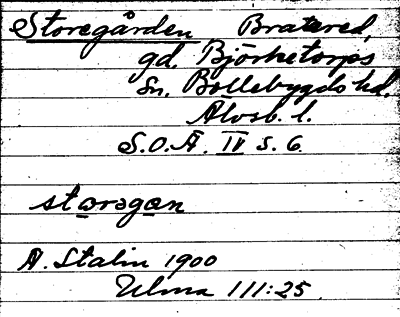 Storegården Bratared,
gd. Björketorps
sn. Bollebygds hd.
Älvsb. l.
S.O.Ä. IV s. 6.
storəgɑn
A. Stalin 1900
Ulma 111:25.